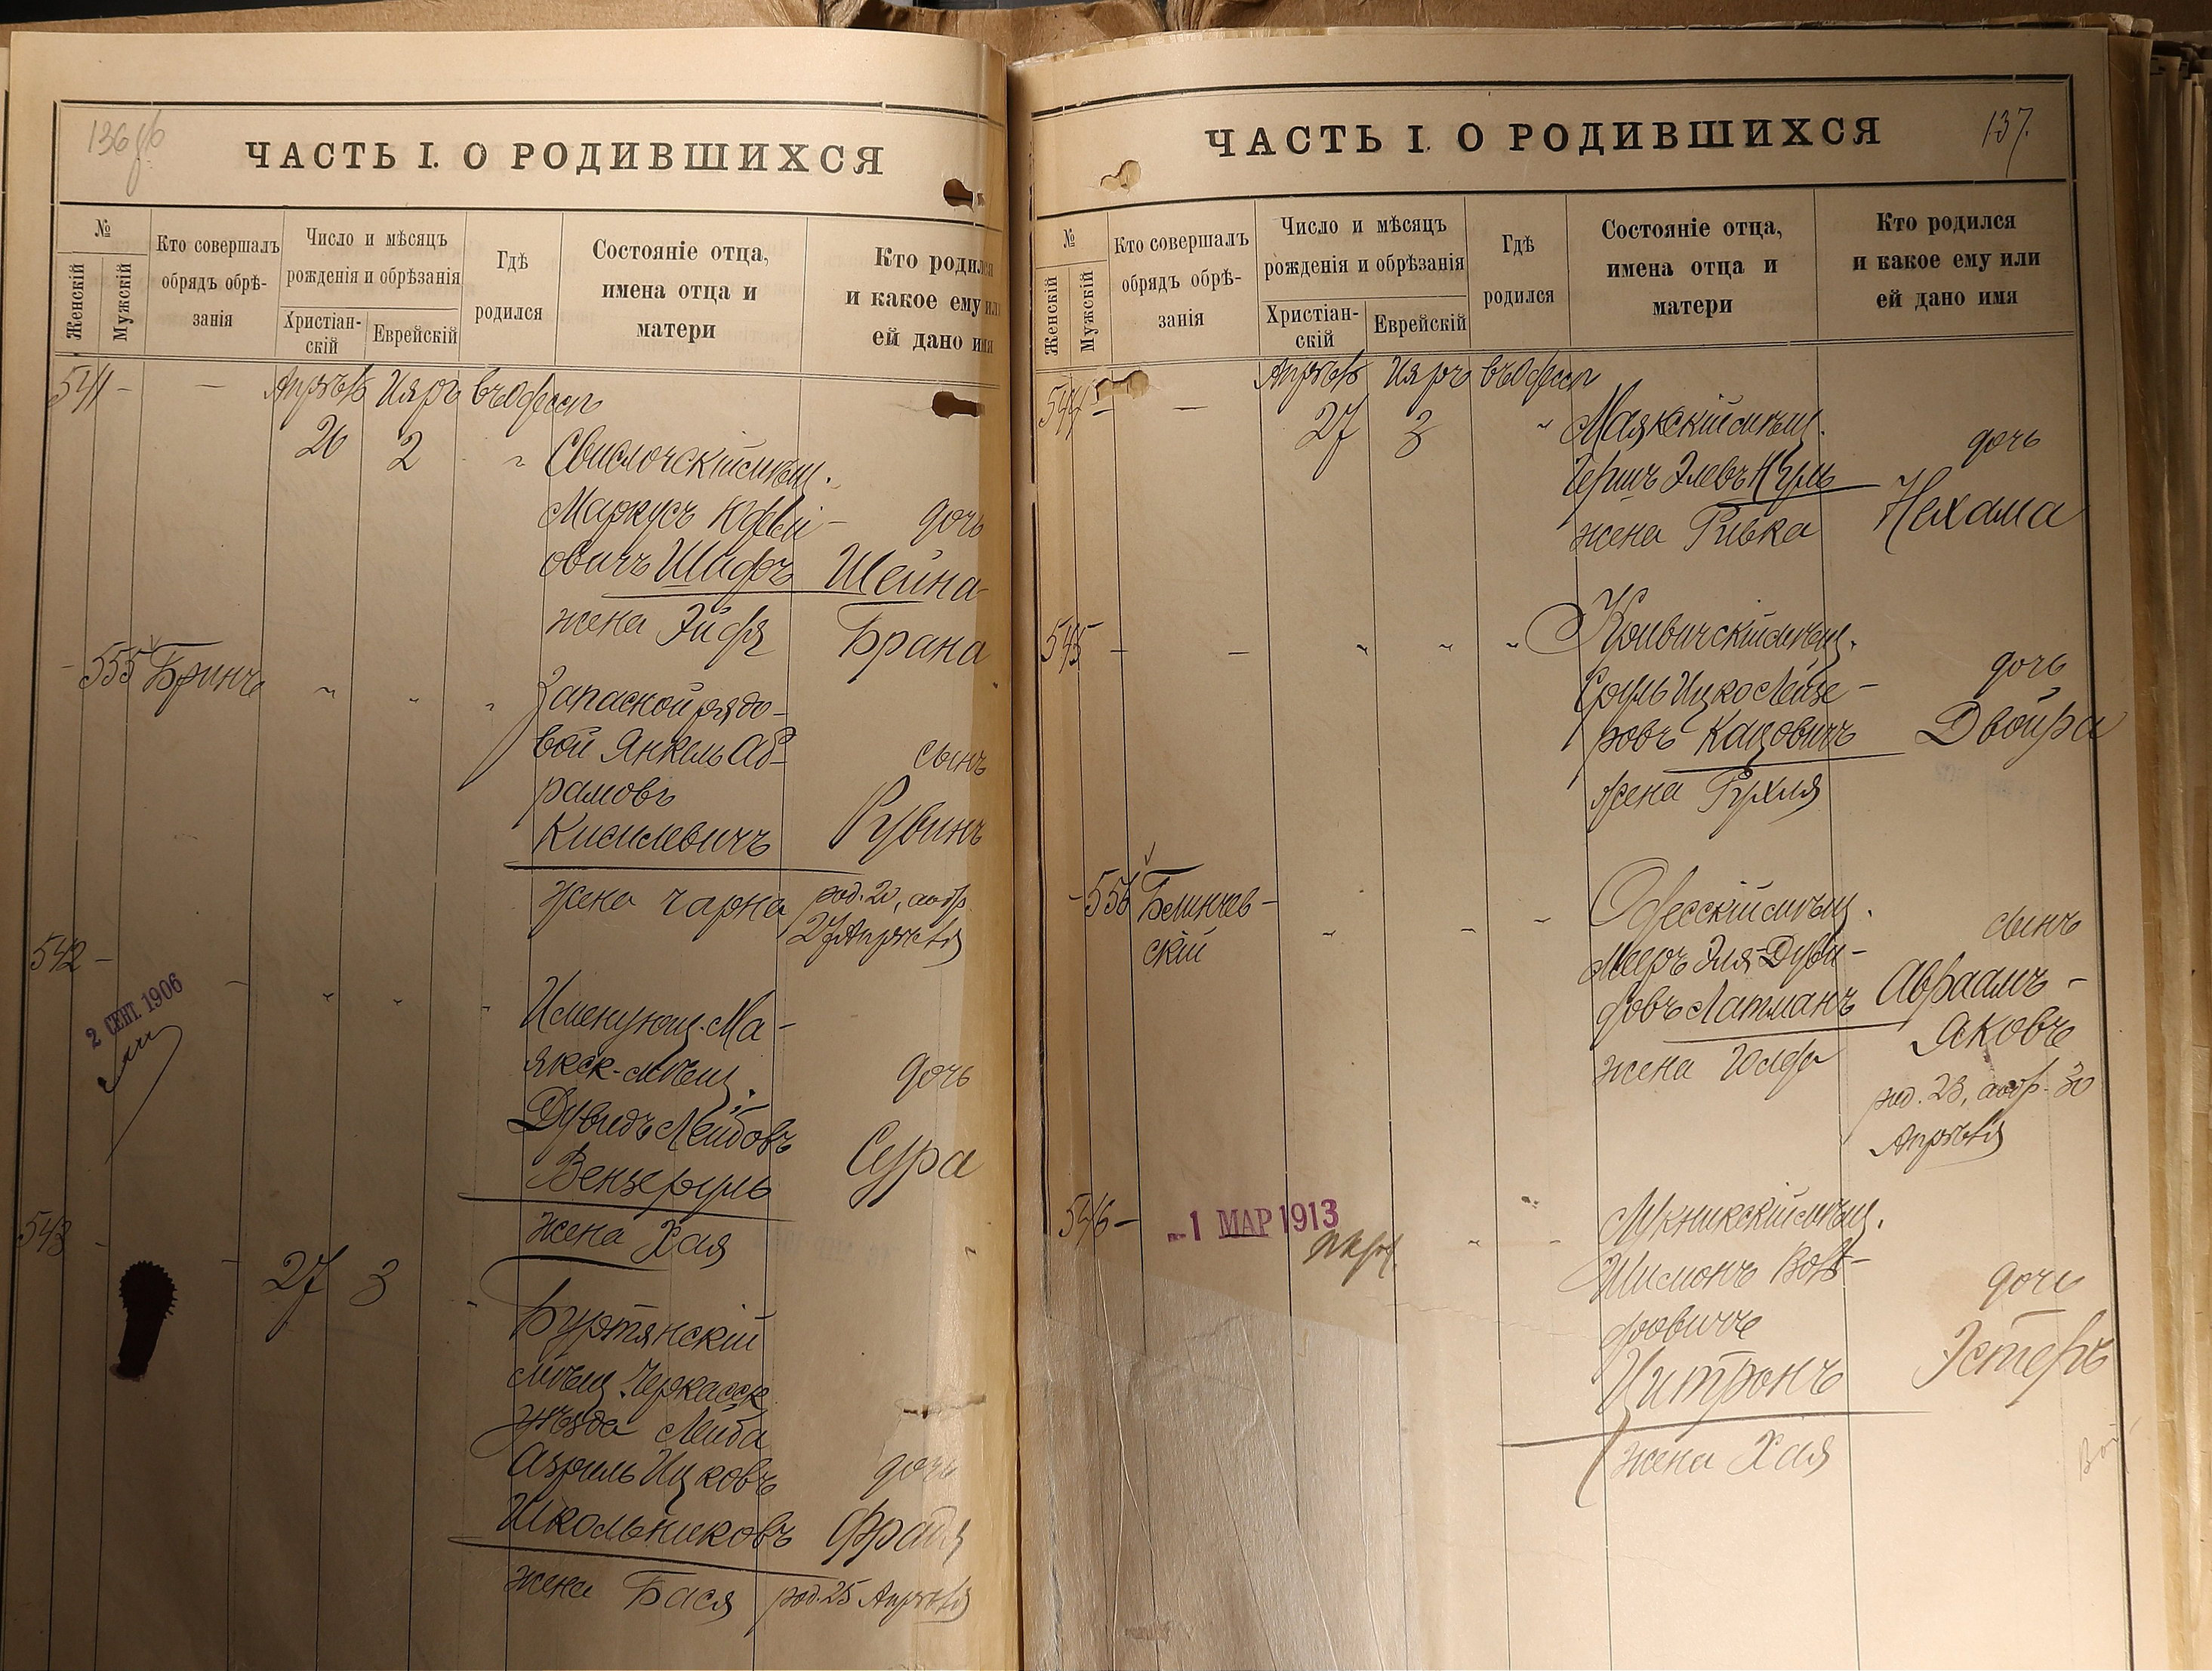 136 об
ЧАСТЬ I. О РОДИВШИХСЯ
№
Женскій
Мужскій
Кто совершалъ
обрядъ обрѣ-
занія
Число и мѣсяцъ
рожденія и обрѣзанія
Христіан-
скій
Еврейскій
Гдѣ
родился
Состояніе отца,
имена отца и
матери
Кто родился
и какое ему или
ей дано имя
541 - - Апрѣль Іяръ въ Одессѣ
26 2 " Свислочскій мѣщ.
Маркусъ
овичъ Шифръ
жена
дочь
Шейна-
Брана
- 555 Бринъ " " "
Запасной рядо-
вой Янкель Аб-
рамовъ
Кисилевичъ
жена Чарна
сынъ
Рувинъ
род. 20, а обр.
27 Апрѣля
542 - - " " "
2 СЕНТ. 1906
Именующ. Ма-
якск. мѣщ.
Дувидъ Лейбовъ
Венгеруль
жена Хая
дочь
Сура
543 - - 27 3 "
Буртянскій
мѣщ. Черкасск.
уѣзда Лейба
Азриль Ицковъ
Школьниковъ
жена Бася
дочь
Фрайда
род. 25 Апрѣля
137.
ЧАСТЬ I. О РОДИВШИХСЯ
№
Женскій
Мужскій
Кто совершалъ
обрядъ обрѣ-
занія
Число и мѣсяцъ
рожденія и обрѣзанія
Христіан-
скій
Еврейскій
Гдѣ
родился
Состояніе отца,
имена отца и
матери
Кто родился
и какое ему или
ей дано имя
544 - - Апрѣль Іяръ въ Одессѣ
27 3 " Маякскій мѣщ.
Гершъ
жена Ривка
дочь
Нехама
545 - - " " "
мѣщ.
Сруль Ицко Лейзе-
ровъ Кацовичъ
жена Рухля
дочь
Двойра
- 556 Белинчев-
скій
" " "
Одесскій мѣщ.
Мееръ Эля Дуви-
довъ Латманъ
жена
сынъ
Авраамъ -
Яковъ
род. 23, а обр. 30
Апрѣля
546 -
- 1 МАР 1913
" "
мѣщ.
Шимонъ Воль-
фовичъ
Цитронъ
жена Хая
дочь
Эстеръ